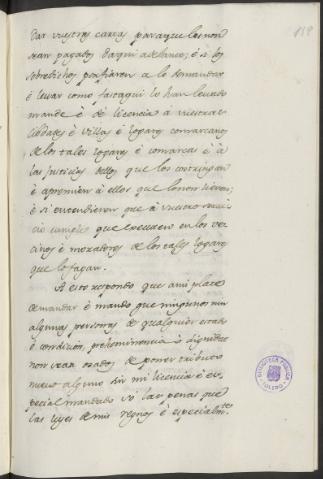 dar vuestras cartas para que les non
sean pagados daqui adelante; é si los
sobredichos porfiaren a lo demandar
é levar como fasta aqui lo han levado
mande é dé licencia á vuestras
cibdades é villas é logares comarcanos
de los tales logares é comarcas é á
las justicias dellos que los constringan
é apremien á ellos que lo non lieven;
é si entendieren que á vuestro servi-
cio cumple que executen en los ve-
cinos é moradores de los tales logares
que lo fagan.
A esto respondo que a mi place
demandar é mando que ningunos nin
algunas personas de qualquier estado
é condicion, preheminencia ó dignidat
non sean osados de poner tributo
nuevo alguno sin mi licencia é es-
pecial mandado só las penas que
las leyes de mis regnos é especialm.te